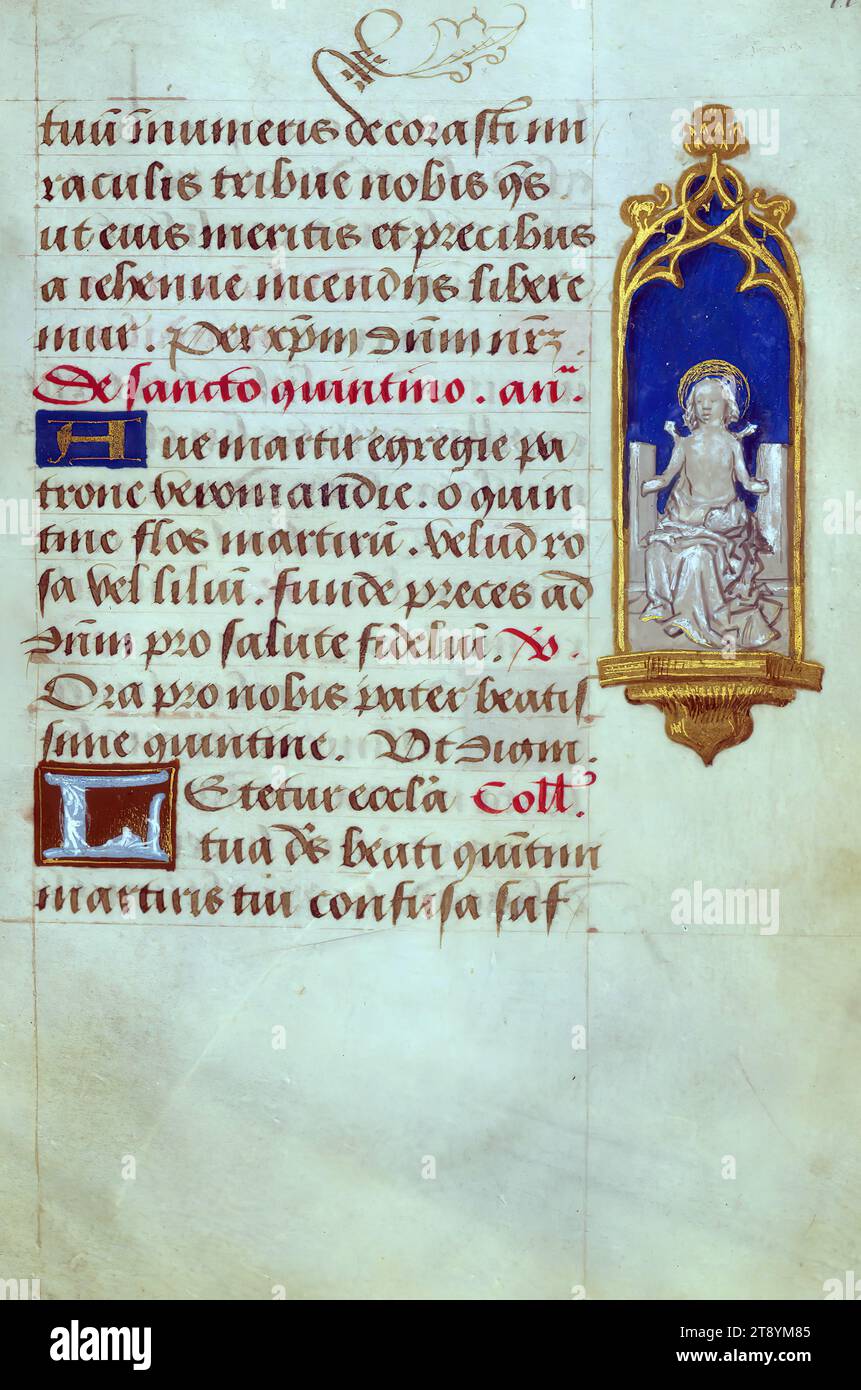 tuū innumeris decorasti mi
raculis tribue nobis q̄s
ut eius meritis et precibus
a iehenne incendijs libere
mur. Per xp̄m dūm nr̄ꝫ.
De sancto quintino. anᵃ.
Aue martir egregie pa
trone veromandie. o quin
tine flos martirū. velud ro
sa vel liliū. funde preces ad
dūm pro salute fideliū. V.
Ora pro nobis pater beatis
sime quintine. Ut digni.
Letetur eccl̄a Coll̄.
tua d̄s beati quintini
martiris tui confusa suf
alamy
alamy
Image ID: 2T8YM85
www.alamy.com